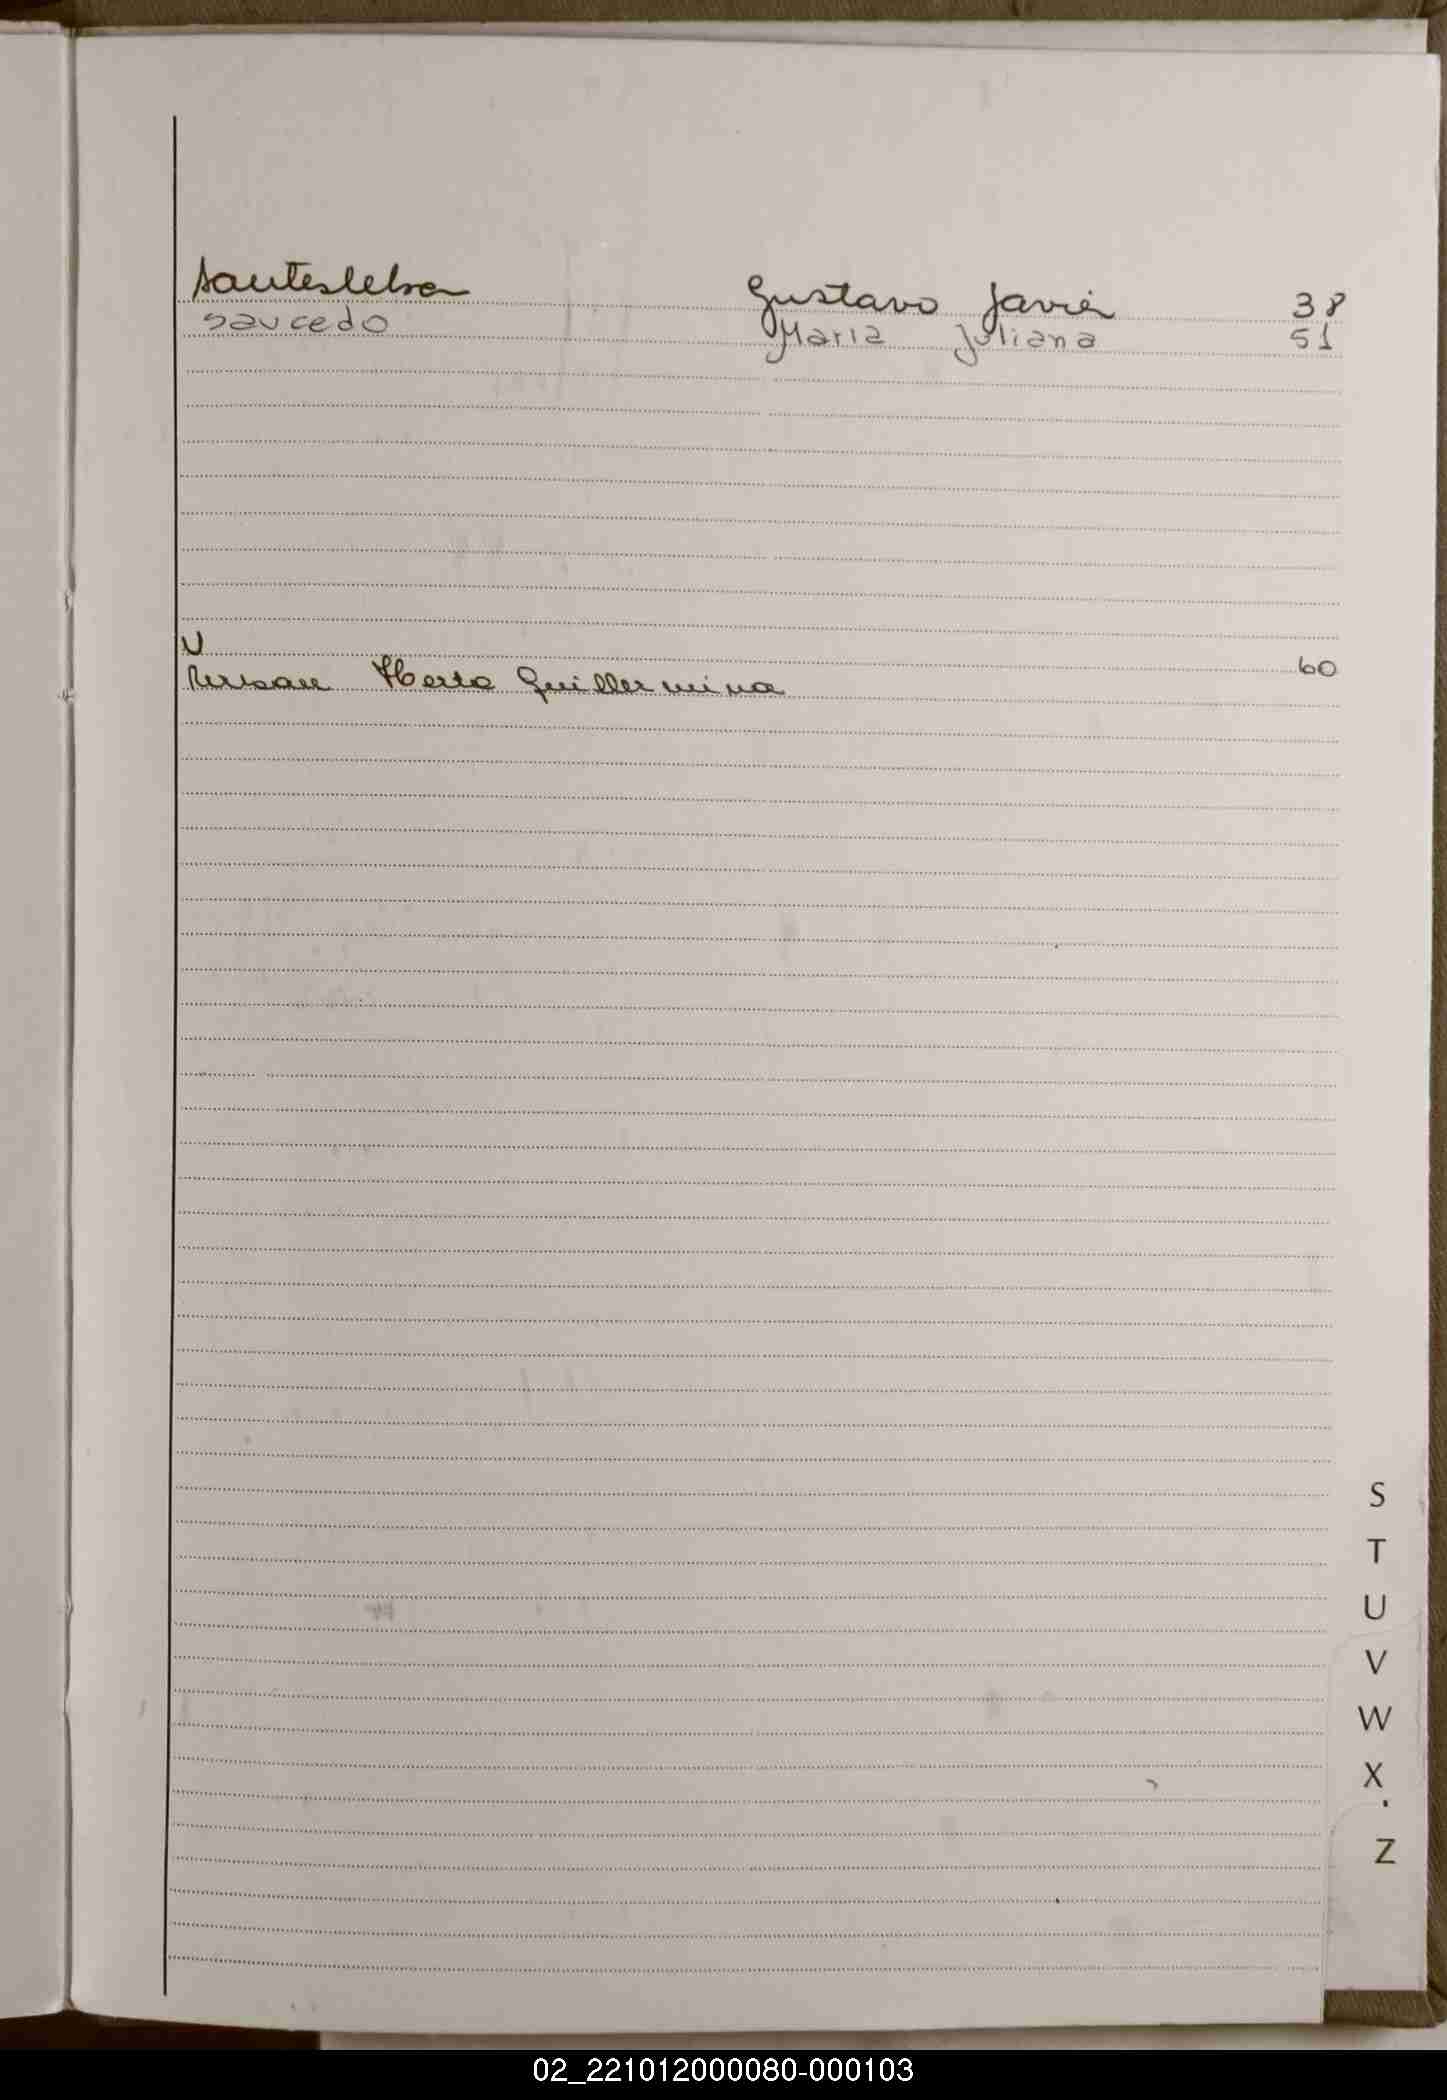 Santesteban Gustavo Javier 38
Saucedo Maria Juliana 51
U
Herta Guillermina 60
S
T
U
V
W
X
Z
02_221012000080-000103